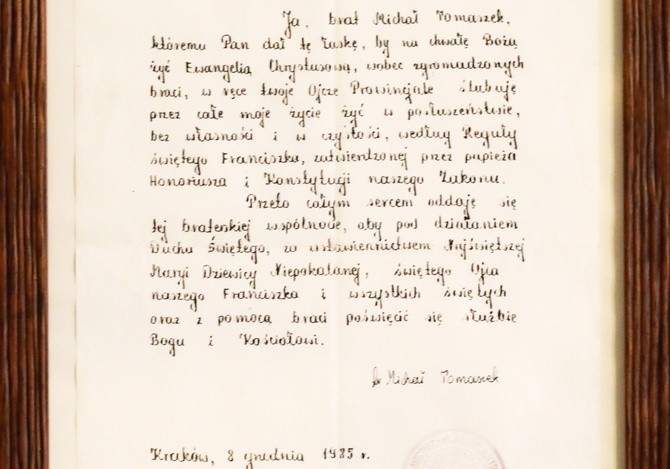 Ja, brat Michał Tomaszek,
któremu Pan dał tę łaskę, by na chwałę Bożą
żyć Ewangelią Chrystusową, wobec zgromadzonych
braci, w ręce twoje Ojcze Prowincjale ślubuję
przez całe moje życie żyć w posłuszeństwie,
bez własności i w czystości, według Reguły
świętego Franciszka, zatwierdzonej przez papieża
Honoriusza i Konstytucji naszego Zakonu.
Przeto całym sercem oddaję się
tej braterskiej wspólnocie, aby pod działaniem
Ducha Świętego, za wstawiennictwem Najświętszej
Maryi Dziewicy Niepokalanej, świętego Ojca
naszego Franciszka i wszystkich świętych
oraz z pomocą braci poświęcić się służbie
Bogu i Kościołowi.
br Michał Tomaszek
Kraków, 8 grudnia 1985 r.